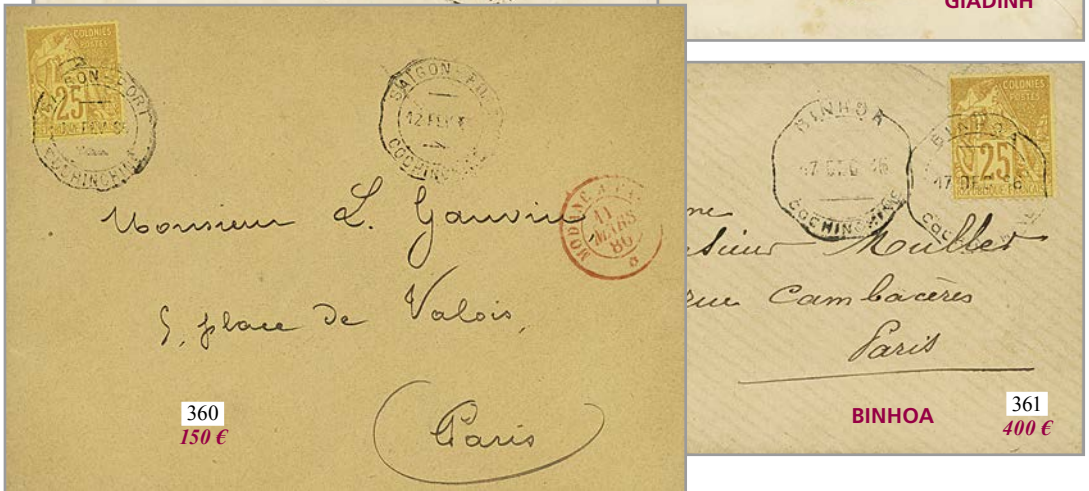 GIADINH
COLONIES
POSTES
25
SAIGON-PORT
COCHINCHINE
SAIGON-PO
12 FEV
COCHINCHINE
MODANE A PA
11
MARS
86
Monsieur L. Gauvin,
5, place de Valois,
Paris
360
150 €
COLONIES
POSTES
25
REPUBLIQUE FRANCAISE
BINHOA
17 DEC 86
COCHINCHINE
BINHOA
17 DEC 86
sieur Muller
rue Cambacères
Paris
BINHOA
361
400 €